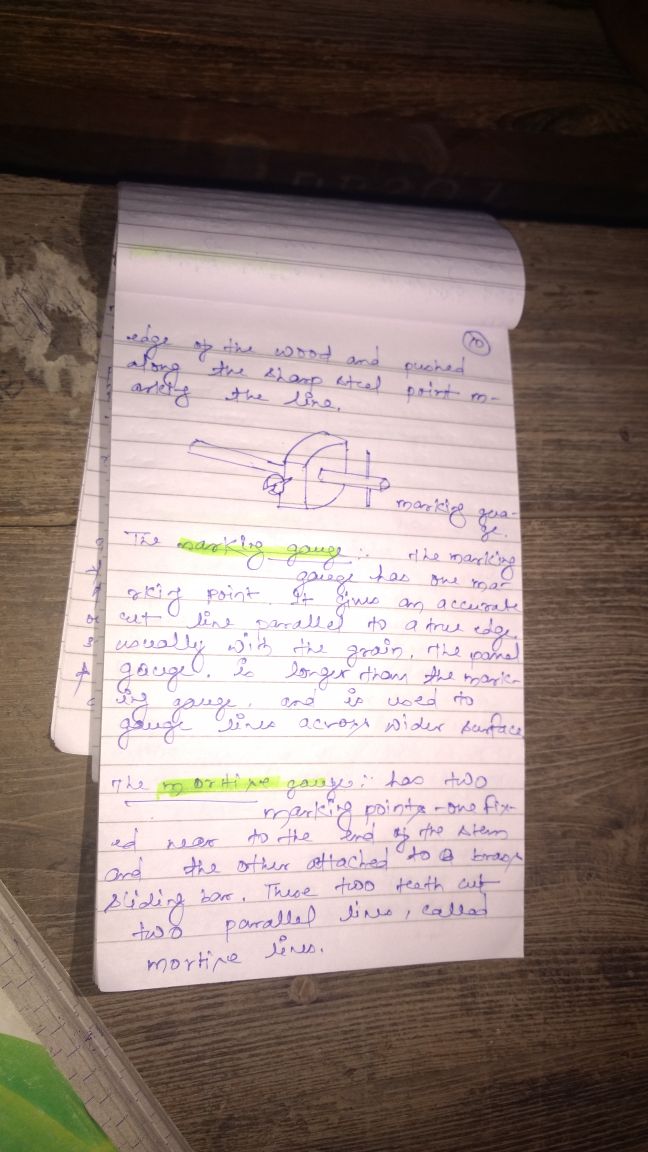 10
edge of the wood and pushed
along the sharp steel point m-
arking the line.
marking gua-
ge.
The marking gauge :- The marking
gauge has one ma-
rking point. It gives an accurate
cut line parallel to a true edge,
usually with the grain. The panel
gauge. is longer than the mark-
ing gauge, and is used to
gauge lines across wider surface
The mortise gauge :- has two
marking points - one fix-
ed near to the end of the stem
and the other attached to a brass
sliding bar. These two teeth cut
two parallel lines, called
mortise lines.